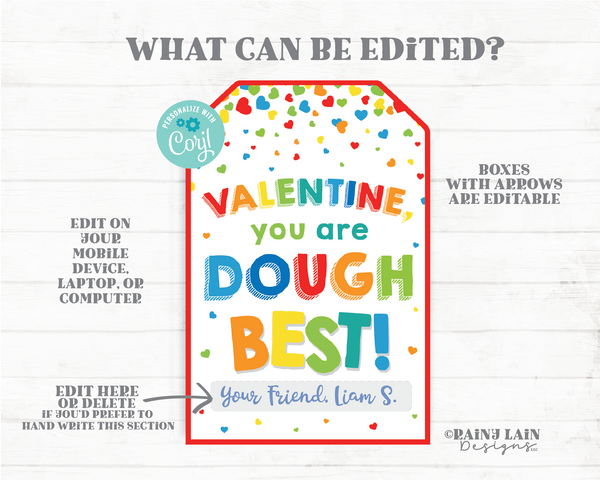 WHAT CAN BE EDITED?
PERSONALIZE WITH
Corjl
VALENTINE,
you are
DOUGH
BEST!
Your Friend, Liam S.
EDIT ON
YOUR
MOBILE
DEVICE,
LAPTOP, OR
COMPUTER
BOXES
WITH ARROWS
ARE EDITABLE
EDIT HERE
OR DELETE
IF YOU'D PREFER TO
HAND WRITE THIS SECTION
©RAINY LAIN
Designs LLC